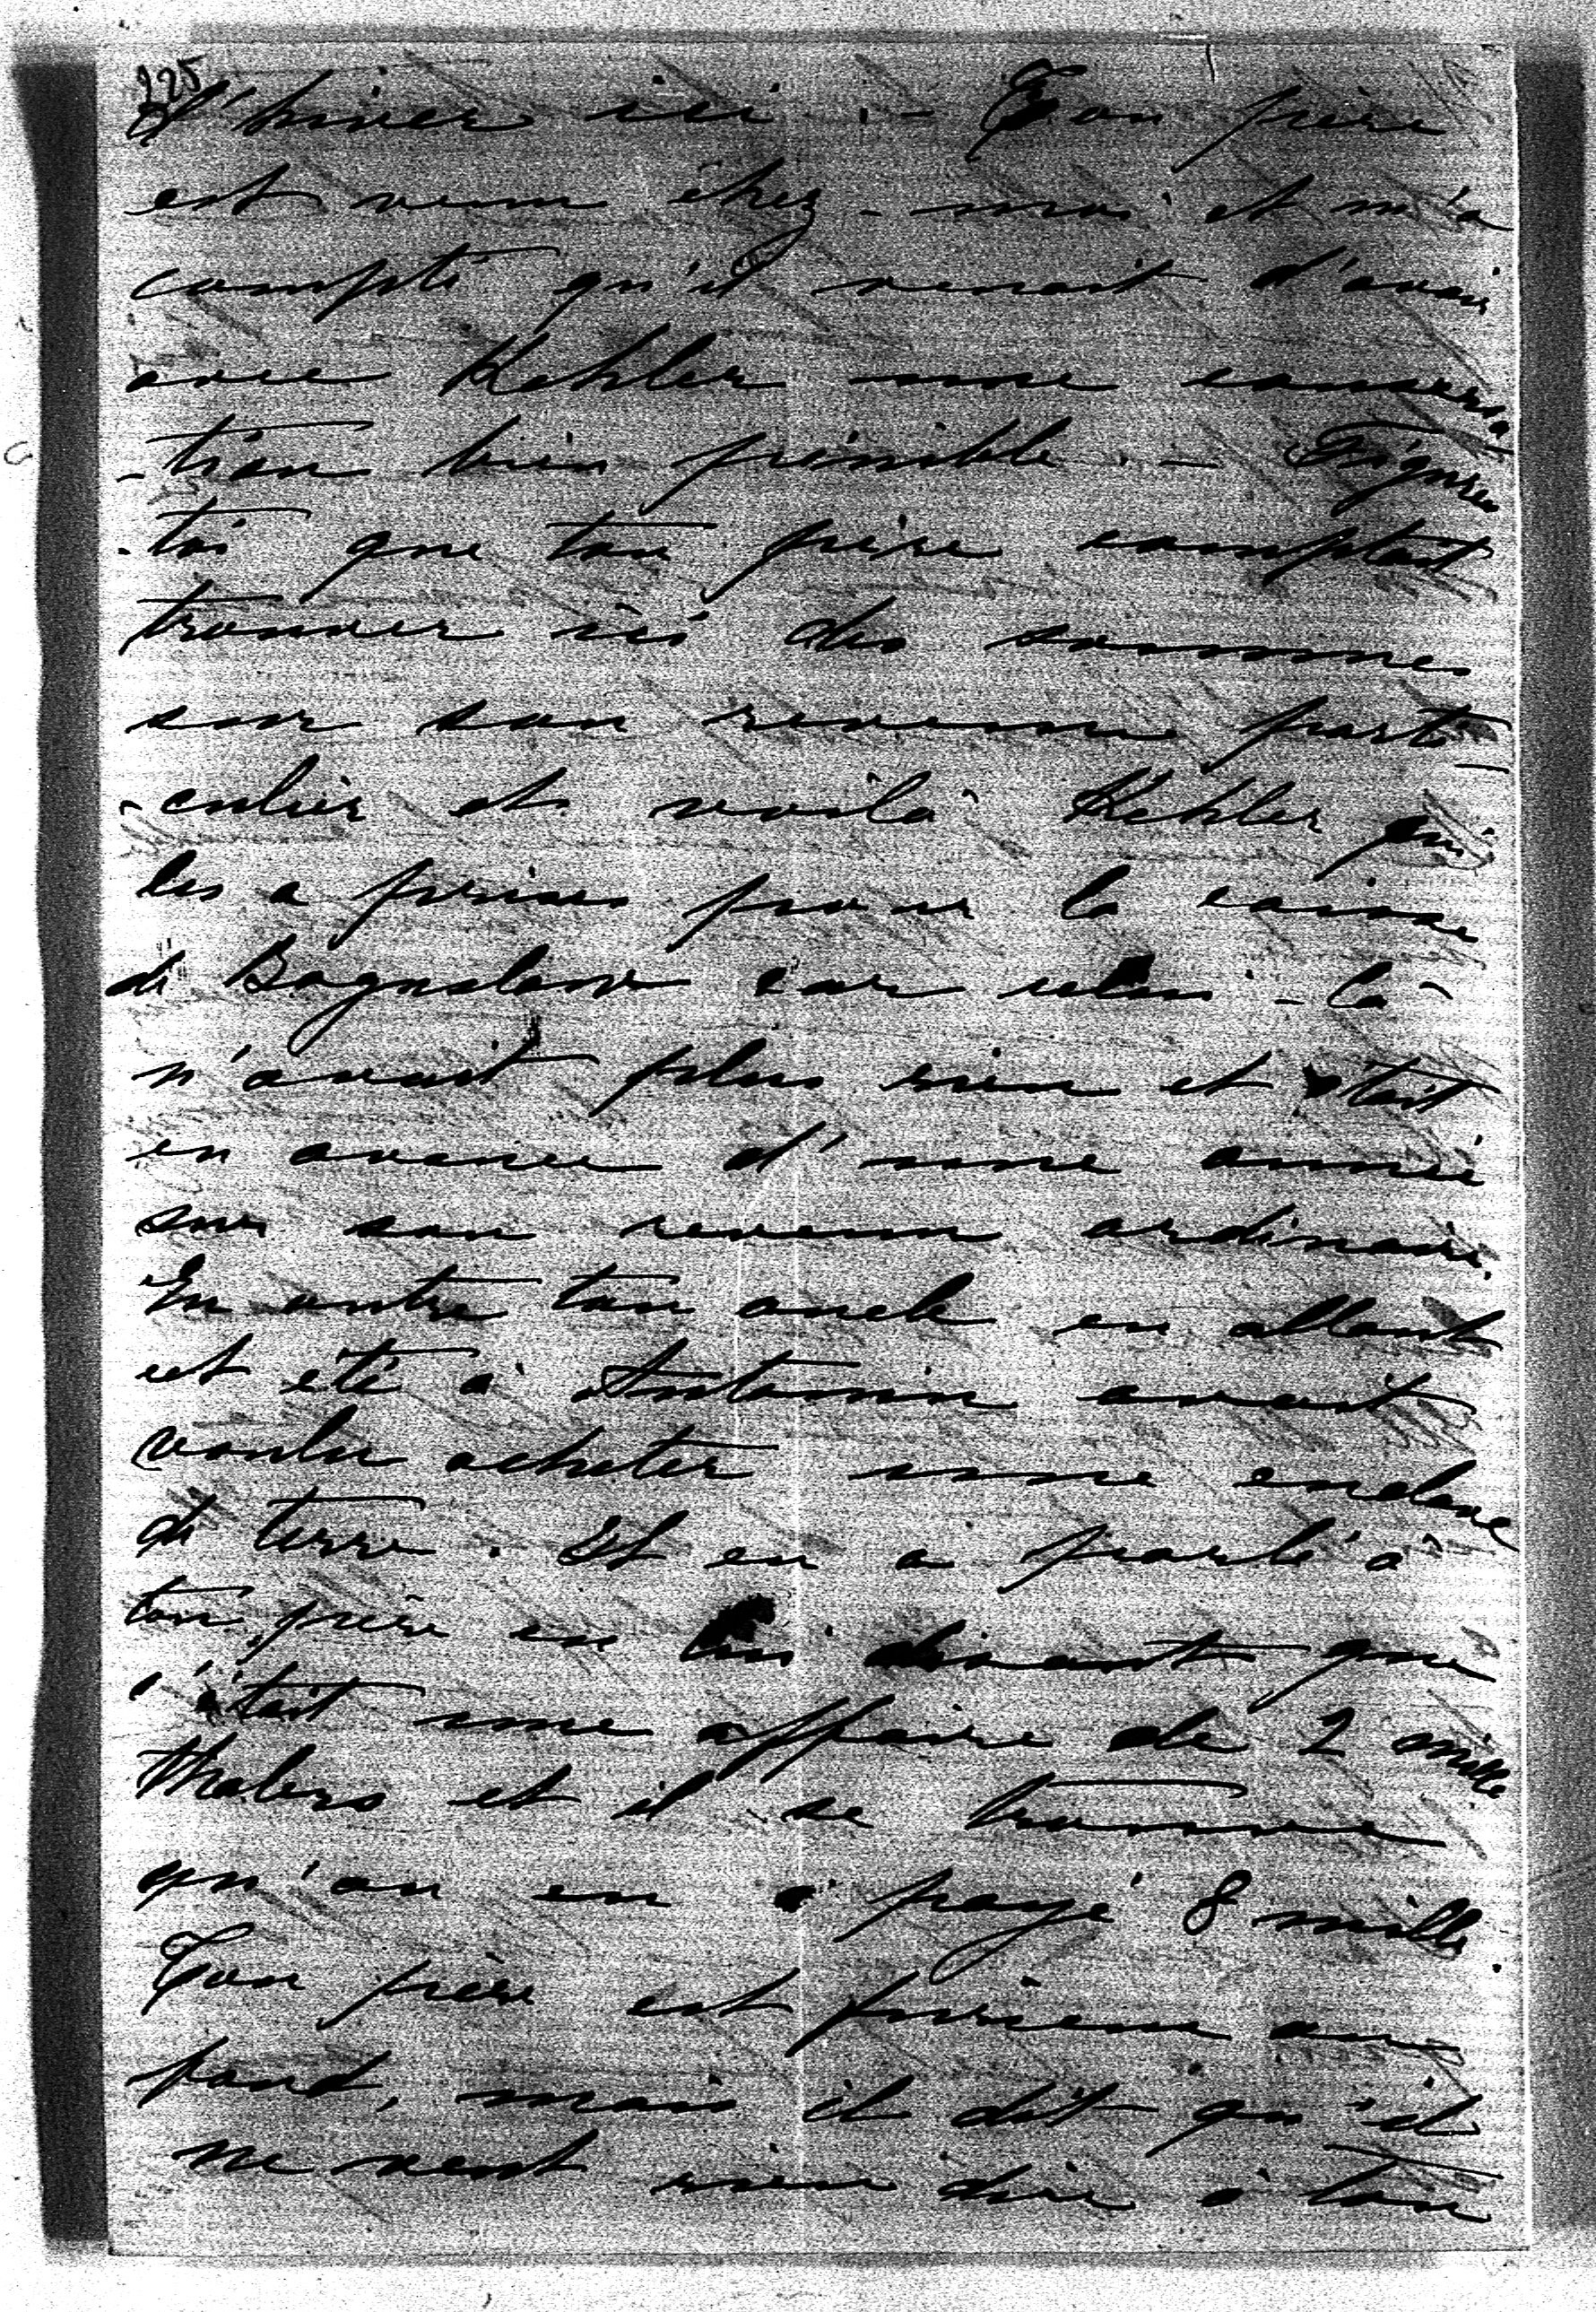 225
l'hiver ici. - Ton père
est venu chez-moi et m'a
compté qu'il venait d'avoir
avec Kehler une conversa
-tion bien pénible. - Figure
-toi que ton père comptait
trouver ici des sommes
sur son revenu parti-
-culier et voilà Kehler qui
les a prises pour la caisse
de Boguslaw car celui-là
n'avait plus rien et était
en avance d'une année
sur son revenu ordinaire.
En outre ton oncle en allant
cet été à Antonin avait
voulu acheter une enclave
de terre. Il en a parlé à
ton père en lui disant que
c'était une affaire de 2 mille
thalers et il se trouve
qu'on en a payé 8 mille.
Ton père est furieux au
fond, mais il dit qu'il
ne veut rien dire à ton